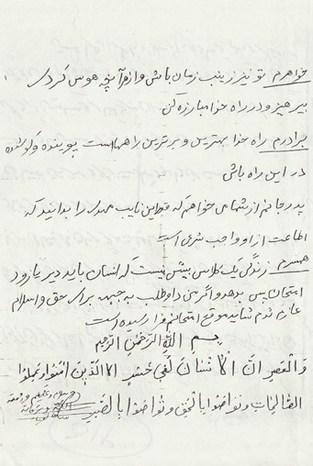 خواهرم تو نیز زینب زمان باش و از هر آنچه هوس کردی
بپرهیز و در راه خدا مبارزه کن
برادرم راه خدا بهترین و برترین راه هاست پوینده و کوشنده
در این راه باش
پدر جانم از شما می خواهم که قدر این نایب مهدی را بدانید که
اطاعت از او واجب شرعی است
همسرم زندگی یک کلاس بیش نیست که انسان باید دیر یا زود
امتحان پس بدهد و اگر من داوطلب به جبهه برای حق و اسلام
عازم شدم شاید موقع امتحانم فرا رسیده است
بسم الله الرحمن الرحیم
والعصر ان الانسان لفی خسر الا الذین امنوا و عملوا
الصالحات و تواصوا بالحق و تواصوا بالصبر